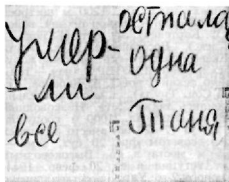 Умер-
ли
все
осталась
одна
Таня